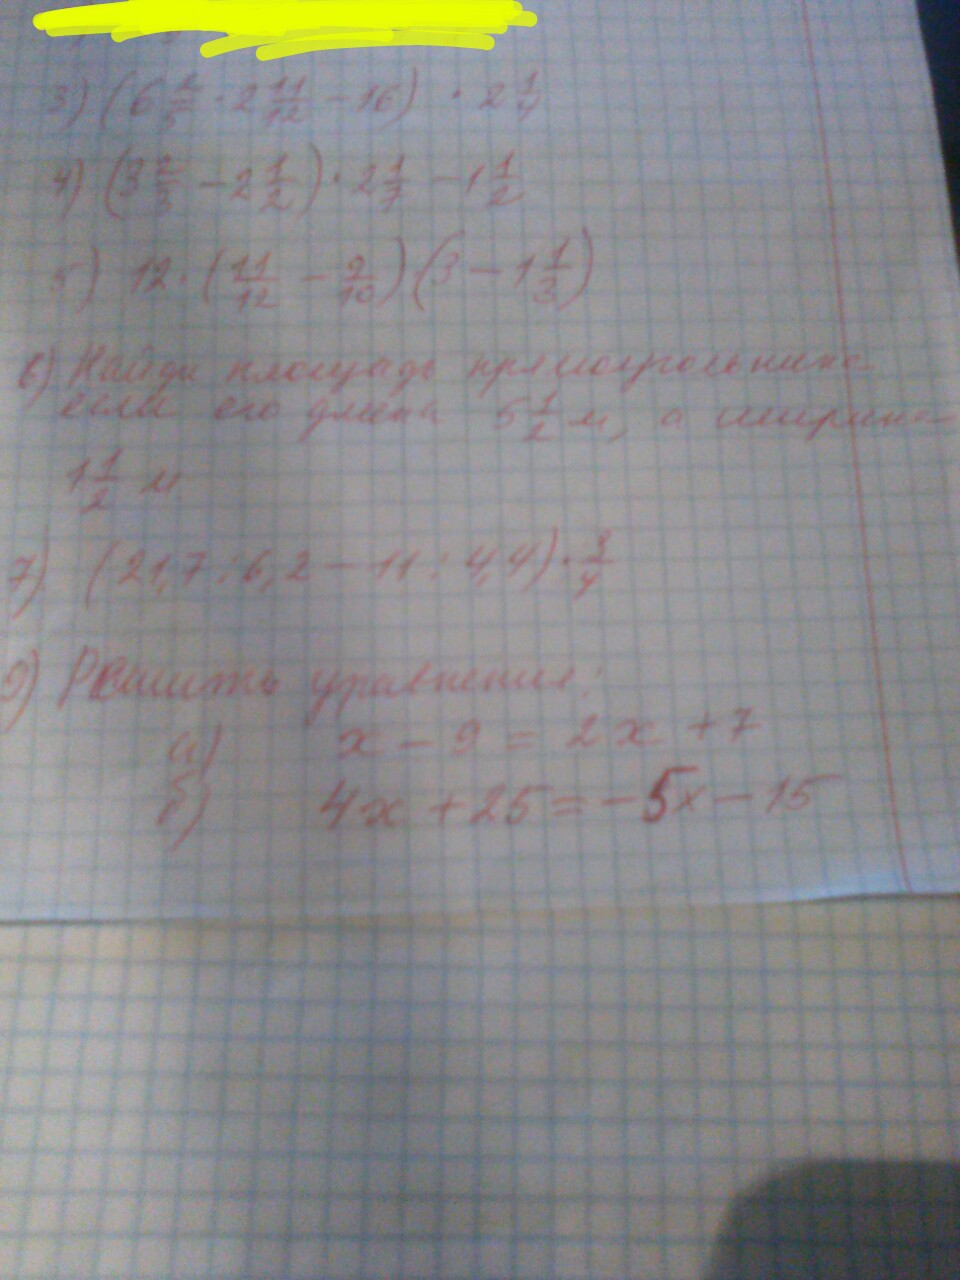 3) (6 2/5 · 2 11/12 - 16) · 2 1/4
4) (3 2/3 - 2 1/2) · 2 1/7 - 1 1/2
5) 12 · (11/12 - 9/10) (3 - 1 1/3)
6) Найди площадь прямоугольника
если его длина 5 1/2 м, а ширина-
1 1/2 м
7) (21,7 : 6,2 - 11 : 4,4) · 3/4
9) Решить уравнения:
а) x - 9 = 2x + 7
б) 4x + 25 = -5x - 15